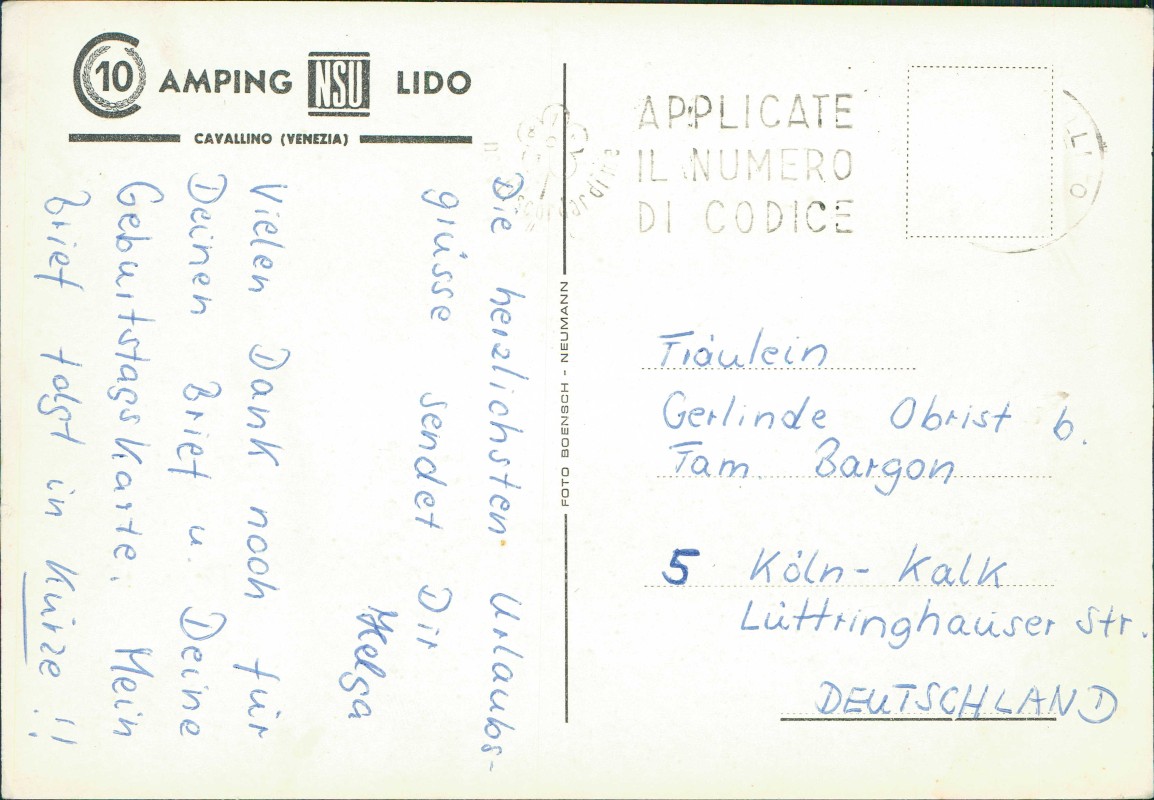 C 10 AMPING NSU LIDO
CAVALLINO (VENEZIA)
Die herzlichsten Urlaubs-
grüsse sendet Dir
Helga
Vielen Dank noch für
Deinen Brief u. Deine
Geburtstagskarte. Mein
Brief folgt in Kürze!!
FOTO BOENSCH - NEUMANN
APPLICATE
IL NUMERO
DI CODICE
Fräulein
Gerlinde Obrist b.
Fam. Bargon
5 Köln-Kalk
Lüttringhauser Str.
DEUTSCHLAND